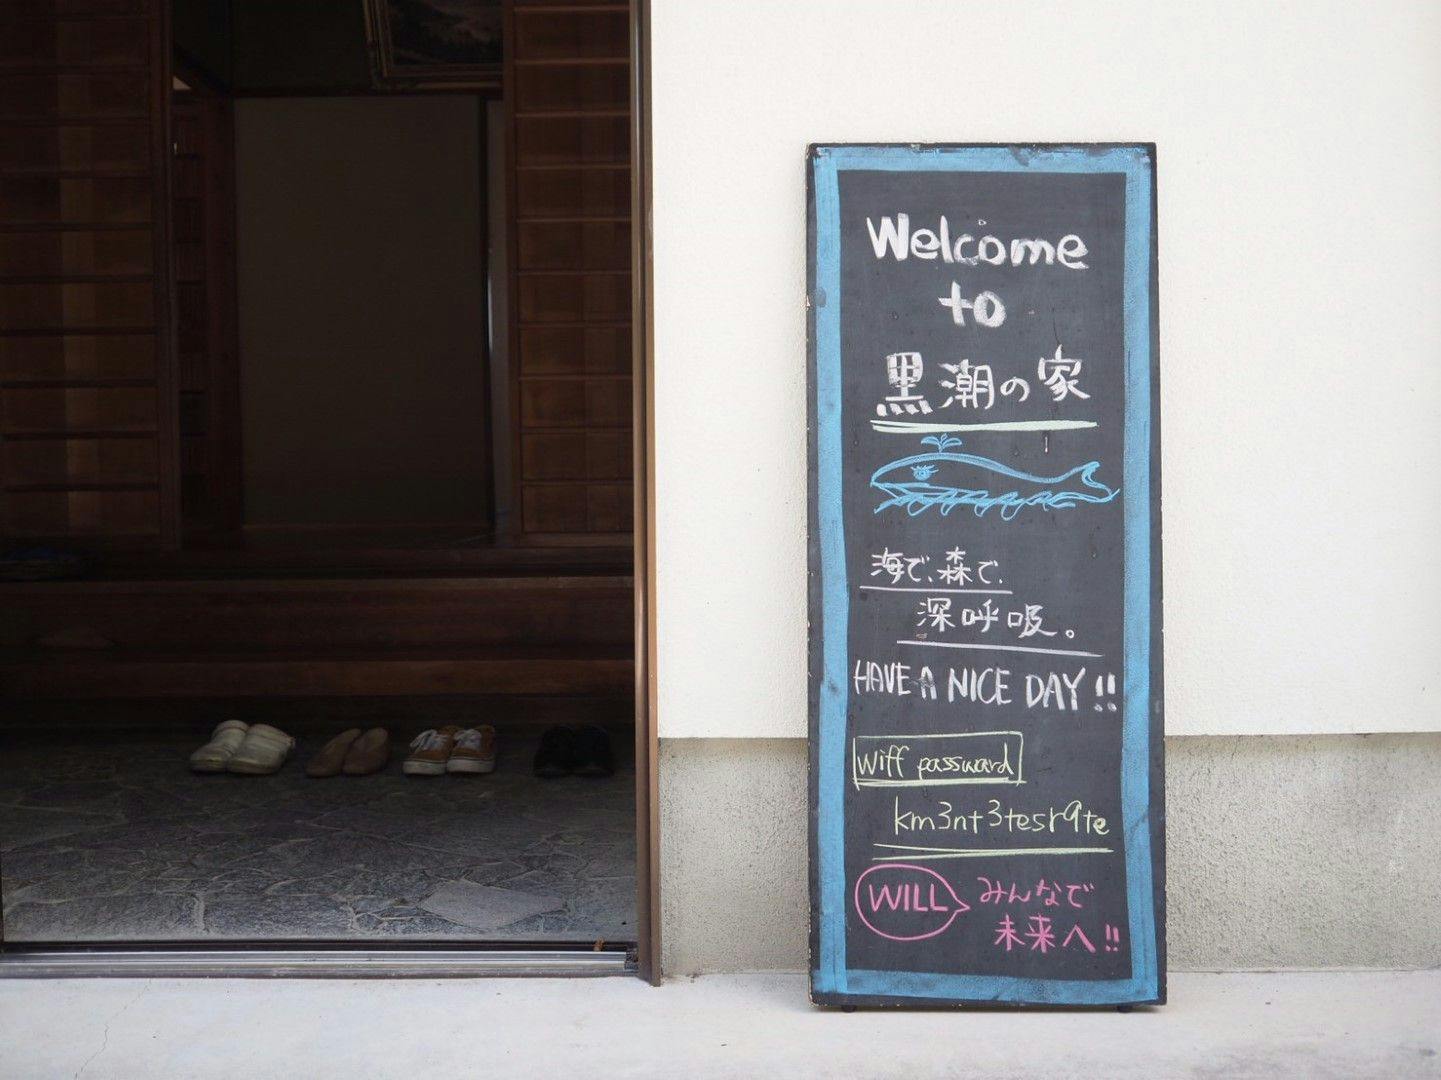 Welcome
to
黒潮の家
海で、森で、
深呼吸。
HAVE A NICE DAY!!
wiff passward
km3nt3tesr9te
WILL みんなで
未来へ!!